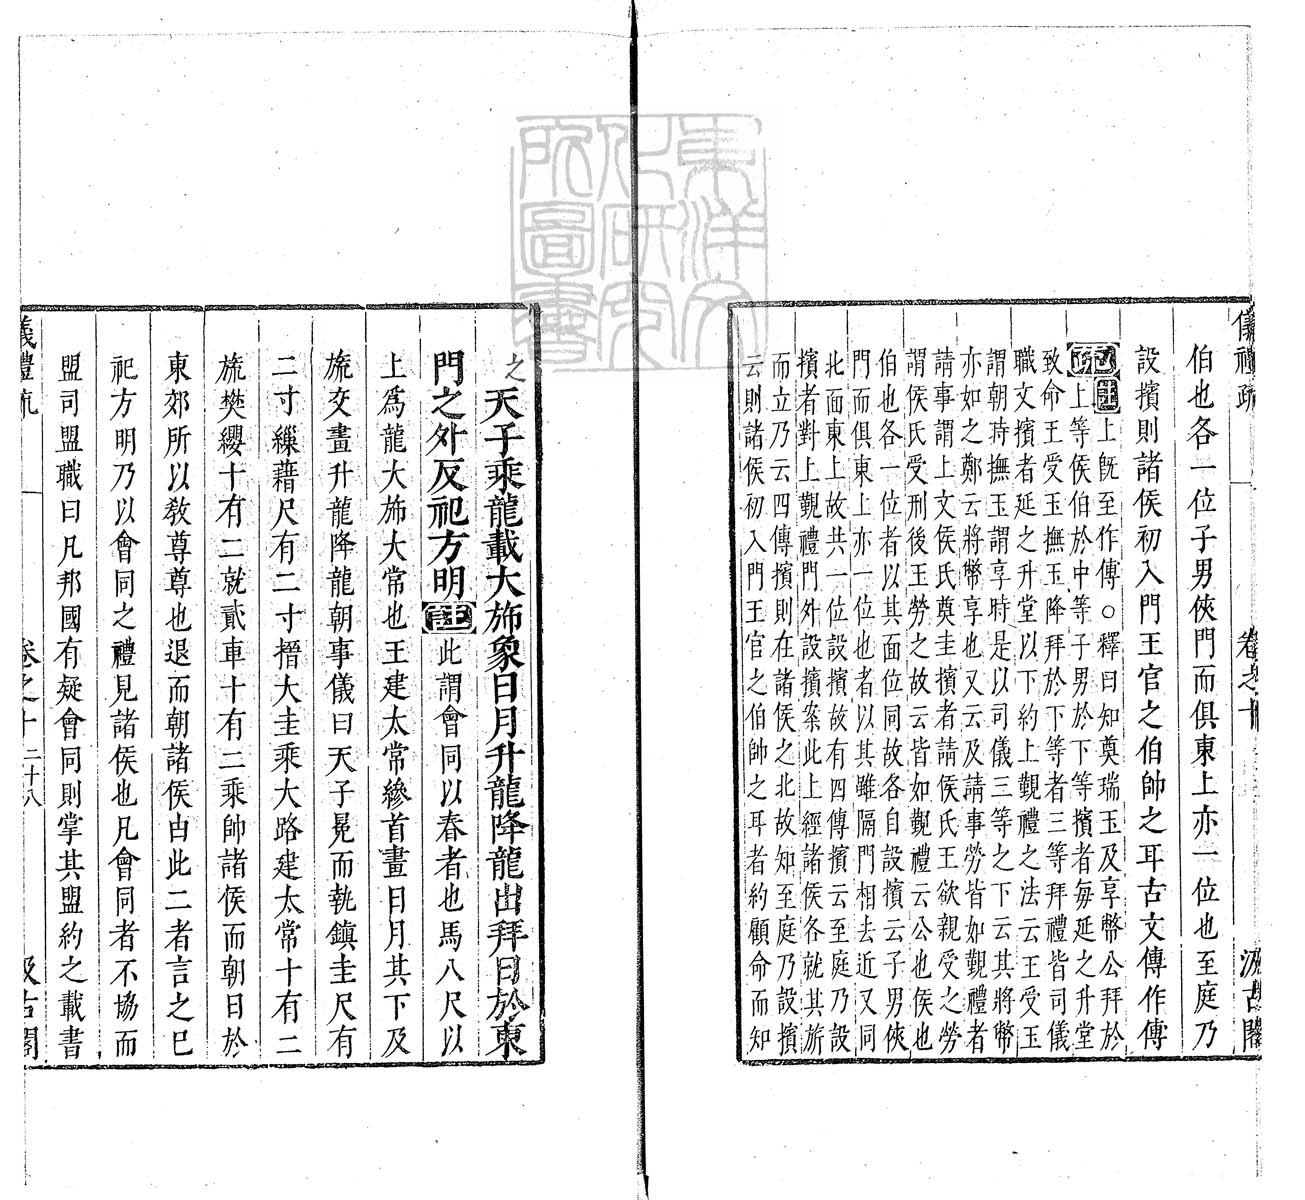 儀禮疏 卷之十 汲古閣
伯也各一位子男俠門而俱東上亦一位也至庭乃
設擯則諸侯初入門王官之伯帥之耳古文傳作傳
疏註上旣至作傳○釋曰知奠瑞玉及享幣公拜於
上等侯伯於中等子男於下等擯者每延之升堂
致命王受玉撫玉降拜於下等者三等拜禮皆司儀
職文擯者延之升堂以下約上覲禮之法云王受玉
謂朝時撫玉謂享時是以司儀三等之下云其將幣
亦如之鄭云將幣享也又云及請事勞皆如覲禮者
請事謂上文侯氏奠圭擯者請侯氏王欲親受之勞
謂侯氏受刑後王勞之故云皆如覲禮云公也侯也
伯也各一位者以其面位同故各自設擯云子男俠
門而俱東上亦一位也者以其雖隔門相去近又同
北面東上故共一位設擯故有四傳擯云至庭乃設
擯者對上覲禮門外設擯案此上經諸侯各就其旂
而立乃云四傳擯則在諸侯之北故知至庭乃設擯
云則諸侯初入門王官之伯帥之耳者約顧命而知
之天子乘龍載大斾象日月升龍降龍出拜日於東
門之外反祀方明註此謂會同以春者也馬八尺以
上爲龍大斾大常也王建太常縿首畫日月其下及
旒交畫升龍降龍朝事儀曰天子冕而執鎮圭尺有
二寸繅藉尺有二寸搢大圭乘大路建太常十有二
旒樊纓十有二就貳車十有二乘帥諸侯而朝日於
東郊所以敎尊尊也退而朝諸侯由此二者言之已
祀方明乃以會同之禮見諸侯也凡會同者不協而
盟司盟職曰凡邦國有疑會同則掌其盟約之載書
儀禮疏 卷之十 二十八 汲古閣